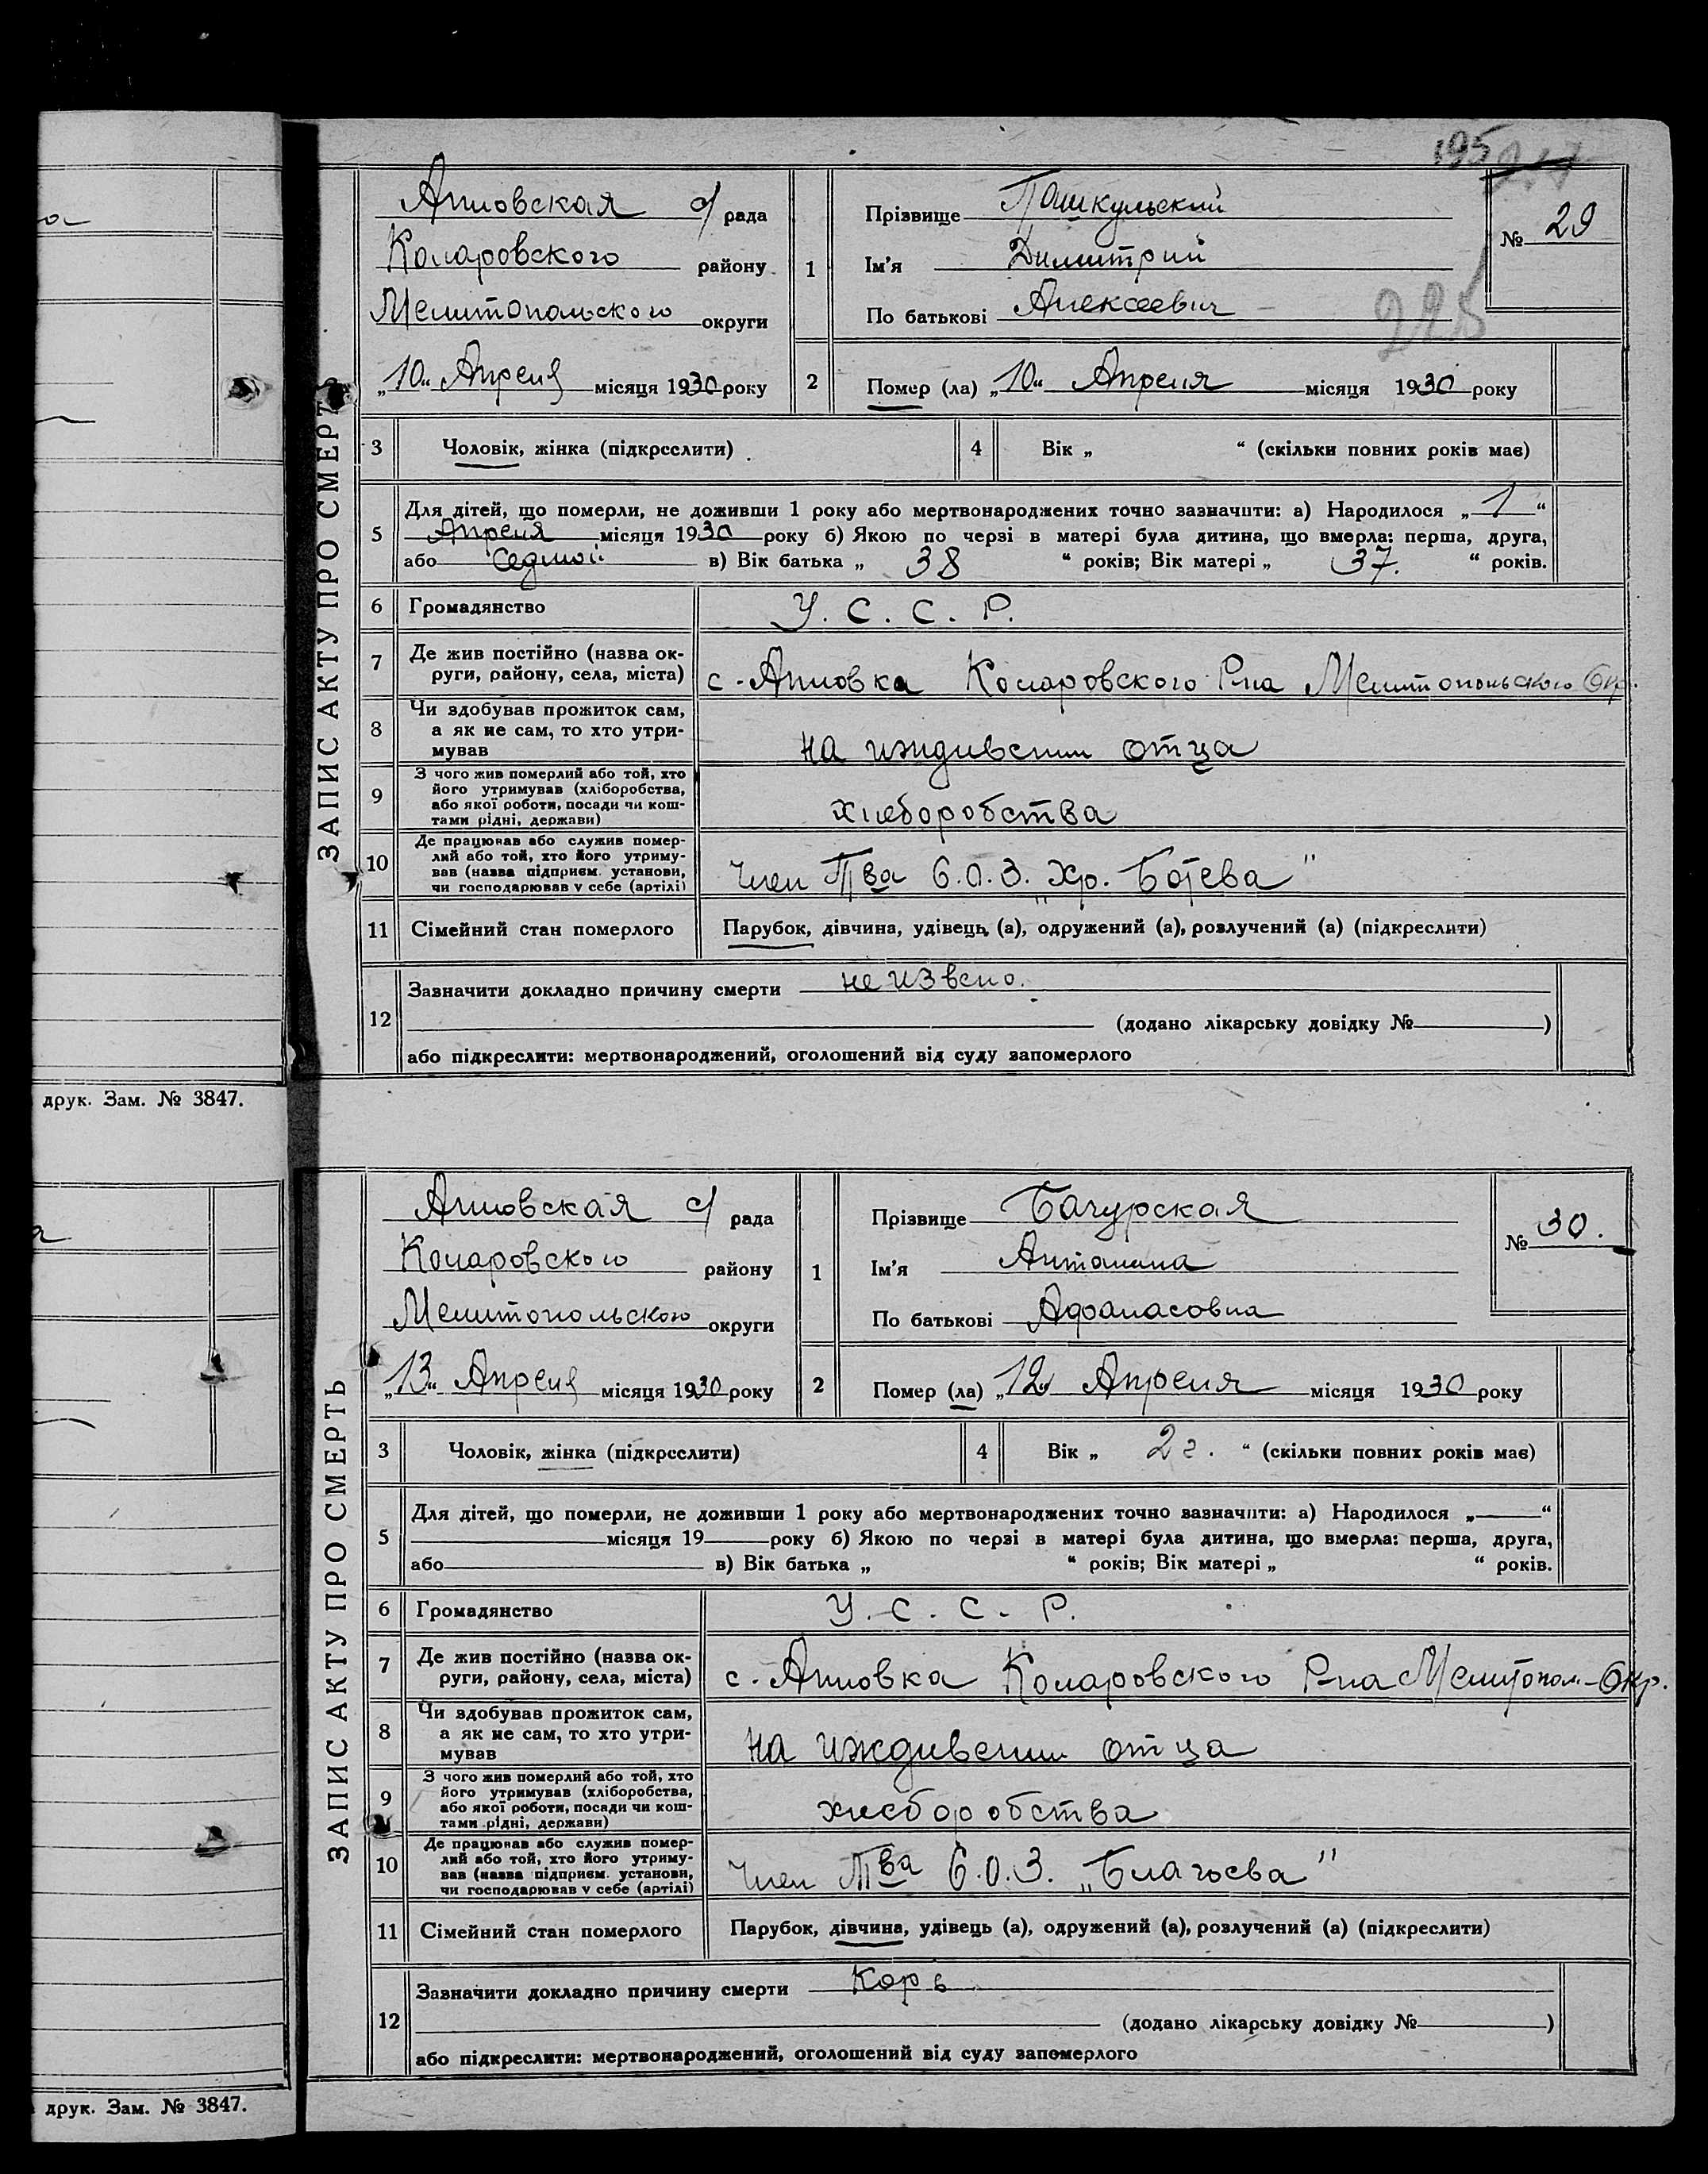 195
217
ЗАПИС АКТУ ПРО СМЕРТЬ
Анновская с/ рада
Коларовского району
Мелитопольского округи
„10“ Апреля місяця 1930 року
1
Прізвище Пашкульский
Ім'я Димитрий
По батькові Алексеевич
№ 29
225
2
Помер (ла) „10“ Апреля місяця 1930 року
3 Чоловік, жінка (підкреслити)
4 Вік „ “ (скільки повних років має)
5 Для дітей, що померли, не доживши 1 року або мертвонароджених точно зазначити: а) Народилося „1“
Апреля місяця 1930 року б) Якою по черзі в матері була дитина, що вмерла: перша, друга,
або седмой в) Вік батька „ 38 “ років; Вік матері „ 37. “ років.
6 Громадянство У. С. С. Р.
7 Де жив постійно (назва ок-
руги, району, села, міста) с. Анновка Коларовского Р-на Мелитопольского Окр.
8 Чи здобував прожиток сам,
а як не сам, то хто утри-
мував на иждивении отца
9 З чого жив померлий або той, хто
його утримував (хліборобства,
або якої роботи, посади чи кош-
тами рідні, держави) хлеборобства
10 Де працював або служив помер-
лий або той, хто його утриму-
вав (назва підприєм. установи,
чи господарював у себе (артілі) Член Тва С.О.З. „Хр. Ботева"
11 Сімейний стан померлого Парубок, дівчина, удівець, (а), одружений (а), розлучений (а) (підкреслити)
12 Зазначити докладно причину смерти не извено.
(додано лікарську довідку № )
або підкреслити: мертвонароджений, оголошений від суду запомерлого
друк. Зам. № 3847.
ЗАПИС АКТУ ПРО СМЕРТЬ
Анновская с/ рада
Коларовского району
Мелитопольского округи
„13“ Апреля місяця 1930 року
1
Прізвище Бачурская
Ім'я Антонина
По батькові Афанасовна
№ 30.
2
Помер (ла) „12“ Апреля місяця 1930 року
3 Чоловік, жінка (підкреслити)
4 Вік „ 2 г. “ (скільки повних років має)
5 Для дітей, що померли, не доживши 1 року або мертвонароджених точно зазначити: а) Народилося „ “
місяця 19 року б) Якою по черзі в матері була дитина, що вмерла: перша, друга,
або в) Вік батька „ “ років; Вік матері „ “ років.
6 Громадянство У. С. С. Р.
7 Де жив постійно (назва ок-
руги, району, села, міста) с. Анновка Коларовского Р-на Мелитопол. Окр.
8 Чи здобував прожиток сам,
а як не сам, то хто утри-
мував на иждивении отца
9 З чого жив померлий або той, хто
його утримував (хліборобства,
або якої роботи, посади чи кош-
тами рідні, держави) хлеборобства
10 Де працював або служив помер-
лий або той, хто його утриму-
вав (назва підприєм. установи,
чи господарював у себе (артілі) Член Тва С.О.З. „Благоева"
11 Сімейний стан померлого Парубок, дівчина, удівець (а), одружений (а), розлучений (а) (підкреслити)
12 Зазначити докладно причину смерти Корь
(додано лікарську довідку № )
або підкреслити: мертвонароджений, оголошений від суду запомерлого
друк. Зам. № 3847.